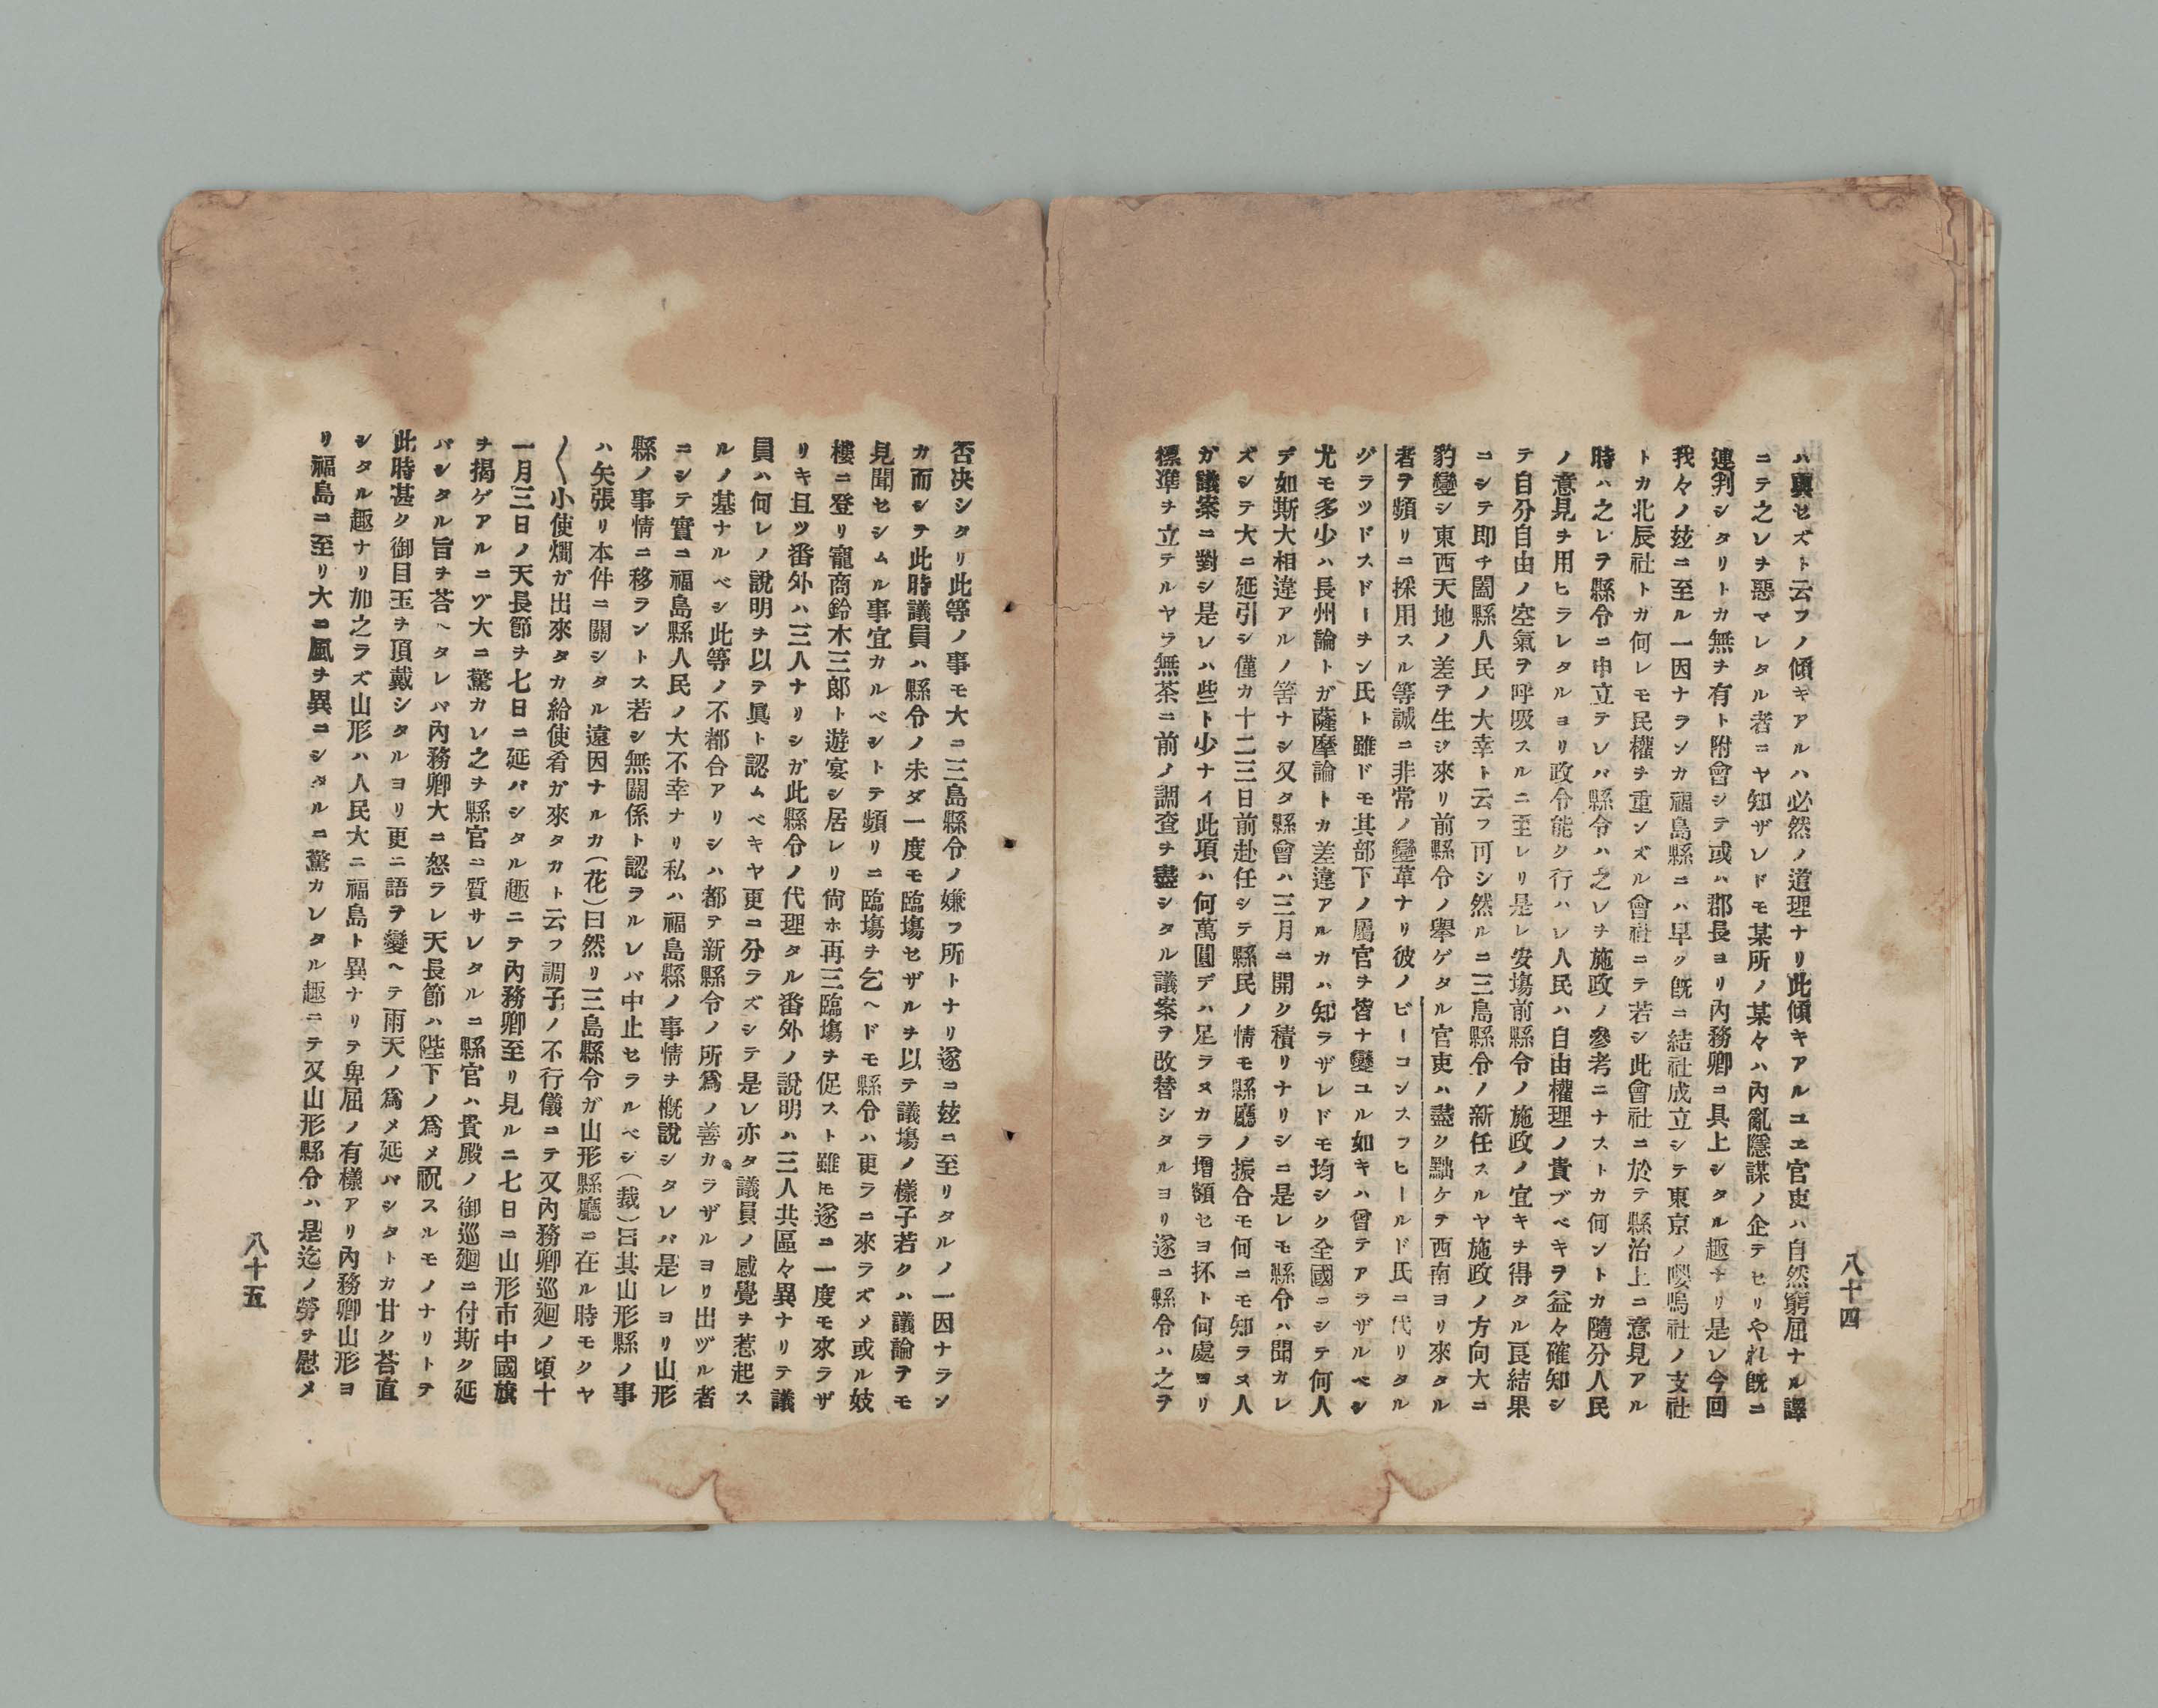 八十四
ハ與セズト云フノ傾キアルハ必然ノ道理ナリ此傾キアルユヱ官吏ハ自然窮屈ナル譯
ニテ之レヲ惡マレタル者ニヤ知ザレドモ某所ノ某々ハ內亂隱謀ノ企テセリやれ旣ニ
連判シタリトカ無ヲ有ト附會シテ或ハ郡長ヨリ內務卿ニ具上シタル趣ナリ是レ今回
我々ノ玆ニ至ル一因ナランカ福島縣ニハ早ク旣ニ結社成立シテ東京ノ嚶鳴社ノ支社
トカ北辰社トカ何レモ民權ヲ重ンズル會社ニテ若シ此會社ニ於テ縣治上ニ意見アル
時ハ之レヲ縣令ニ申立テレバ縣令ハ之レヲ施政ノ參考ニナストカ何ントカ隨分人民
ノ意見ヲ用ヒラレタルヨリ政令能ク行ハレ人民ハ自由權理ノ貴ブベキヲ益々確知シ
テ自分自由ノ空氣ヲ呼吸スルニ至レリ是レ安塲前縣令ノ施政ノ宜キヲ得タル良結果
ニシテ卽チ闔縣人民ノ大幸ト云フ可シ然ルニ三島縣令ノ新任スルヤ施政ノ方向大ニ
豹變シ東西天地ノ差ヲ生ジ來リ前縣令ノ擧ゲタル官吏ハ盡ク黜ケテ西南ヨリ來タル
者ヲ頻リニ採用スル等誠ニ非常ノ變革ナリ彼ノビーコンスフヒールド氏ニ代リタル
グラツドスドーチン氏ト雖ドモ其部下ノ屬官ヲ皆ナ變ユル如キハ曾テアラザルベシ
尤モ多少ハ長州論トガ薩摩論トカ差違アルカハ知ラザレドモ均シク全國ニシテ何人
デ如斯大相違アルノ筈ナシ又タ縣會ハ三月ニ開ク積リナリシニ是レモ縣令ハ聞カレ
ズシテ大ニ延引シ僅カ十二三日前赴任シテ縣民ノ情モ縣廳ノ振合モ何ニモ知ラヌ人
ガ議案ニ對シ是レハ些ト少ナイ此項ハ何萬圓デハ足ラヌカラ增額セヨ抔ト何處ヨリ
標準ヲ立テルヤラ無茶ニ前ノ調査ヲ盡シタル議案ヲ改替シタルヨリ遂ニ縣令ハ之ヲ
否决シタリ此等ノ事モ大ニ三島縣令ノ嫌フ所トナリ遂ニ玆ニ至リタルノ一因ナラン
カ而シテ此時議員ハ縣令ノ未ダ一度モ臨塲セザルヲ以テ議塲ノ樣子若クハ議論ヲモ
見聞セシムル事宜カルベシトテ頻リニ臨塲ヲ乞ヘドモ縣令ハ更ラニ來ラズメ或ル妓
樓ニ登リ寵商鈴木三郞ト遊宴シ居レリ尙ホ再三臨塲ヲ促スト雖モ遂ニ一度モ來ラザ
リキ且ツ番外ハ三人ナリシガ此縣令ノ代理タル番外ノ說明ハ三人共區々異ナリテ議
員ハ何レノ說明ヲ以テ眞ト認ムベキヤ更ニ分ラズシテ是レ亦タ議員ノ感覺ヲ惹起ス
ルノ基ナルベシ此等ノ不都合アリシハ都テ新縣令ノ所爲ノ善カラザルヨリ出ヅル者
ニシテ實ニ福島縣人民ノ大不幸ナリ私ハ福島縣ノ事情ヲ槪說シタレバ是レヨリ山形
縣ノ事情ニ移ラントス若シ無關係ト認ラルレバ中止セラルベシ（裁）曰其山形縣ノ事
ハ矢張リ本件ニ關シタル遠因ナルカ（花）曰然リ三島縣令ガ山形縣廳ニ在ル時モクヤ
〱小使燗ガ出來タカ給使肴ガ來タカト云フ調子ノ不行儀ニテ又內務卿巡廻ノ頃十
一月三日ノ天長節ヲ七日ニ延バシタル趣ニテ內務卿至リ見ルニ七日ニ山形市中國旗
ヲ揭ゲアルニゾ大ニ驚カレ之ヲ縣官ニ質サレタルニ縣官ハ貴殿ノ御巡廻ニ付斯ク延
バシタル旨ヲ荅ヘタレバ內務卿大ニ怒ラレ天長節ハ陛下ノ爲メ祝スルモノナリトテ
此時甚ク御目玉ヲ頂戴シタルヨリ更ニ語ヲ變ヘテ雨天ノ爲メ延バシタトカ甘ク荅直
シタル趣ナリ加之ラズ山形ハ人民大ニ福島ト異ナリテ卑屈ノ有樣アリ內務卿山形ヨ
リ福島ニ至リ大ニ風ヲ異ニシタルニ驚カレタル趣ニテ又山形縣令ハ是迄ノ勞ヲ慰メ
八十五